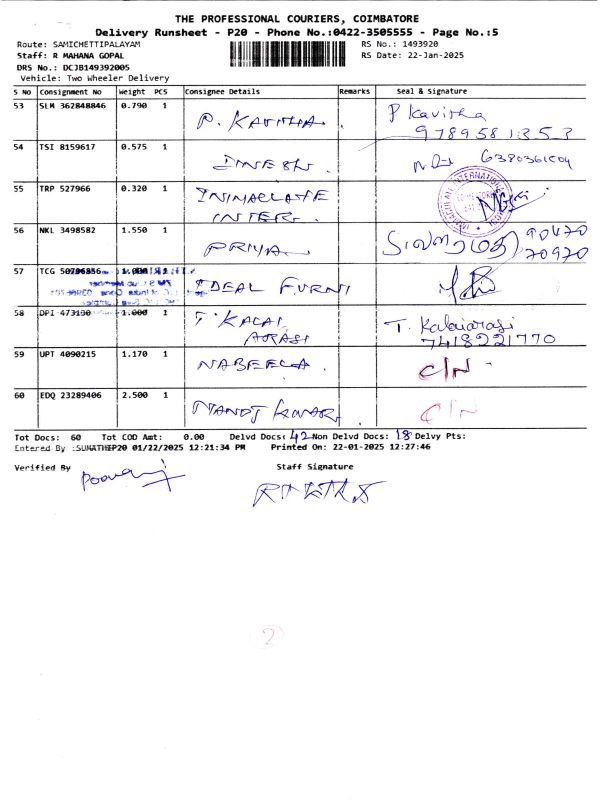 THE PROFESSIONAL COURIERS, COIMBATORE
Delivery Runsheet - P20 - Phone No.:0422-3505555 - Page No.:5
Route: SAMICHETTIPALAYAM RS No.: 1493920
Staff: R MAHANA GOPAL RS Date: 22-Jan-2025
DRS No.: DCJB149392005
Vehicle: Two Wheeler Delivery
S No Consignment No Weight PCS Consignee Details Remarks Seal & Signature
53 SLM 362848846 0.790 1 P. KAVITHA P Kavitha
9789581353
54 TSI 8159617 0.575 1 DINESH
55 TRP 527966 0.320 1 INIMACLATE
INTER.
56 NKL 3498582 1.550 1 PRIYA 90470
70970
57 TCG 1 IDEAL FURNI
58 DPI 1.000 1 T. KALAI T. Kalaiarasi
ARASI 7418221770
59 UPT 4090215 1.170 1 NABEELA. C/N
60 EDQ 23289406 2.500 1 NANDJ KUMAR. C/N
Tot Docs: 60 Tot COD Amt: 0.00 Delvd Docs: 42 Non Delvd Docs: 18 Delvy Pts:
Entered By :SUMATHEP20 01/22/2025 12:21:34 PM Printed On: 22-01-2025 12:27:46
Verified By Staff Signature
2